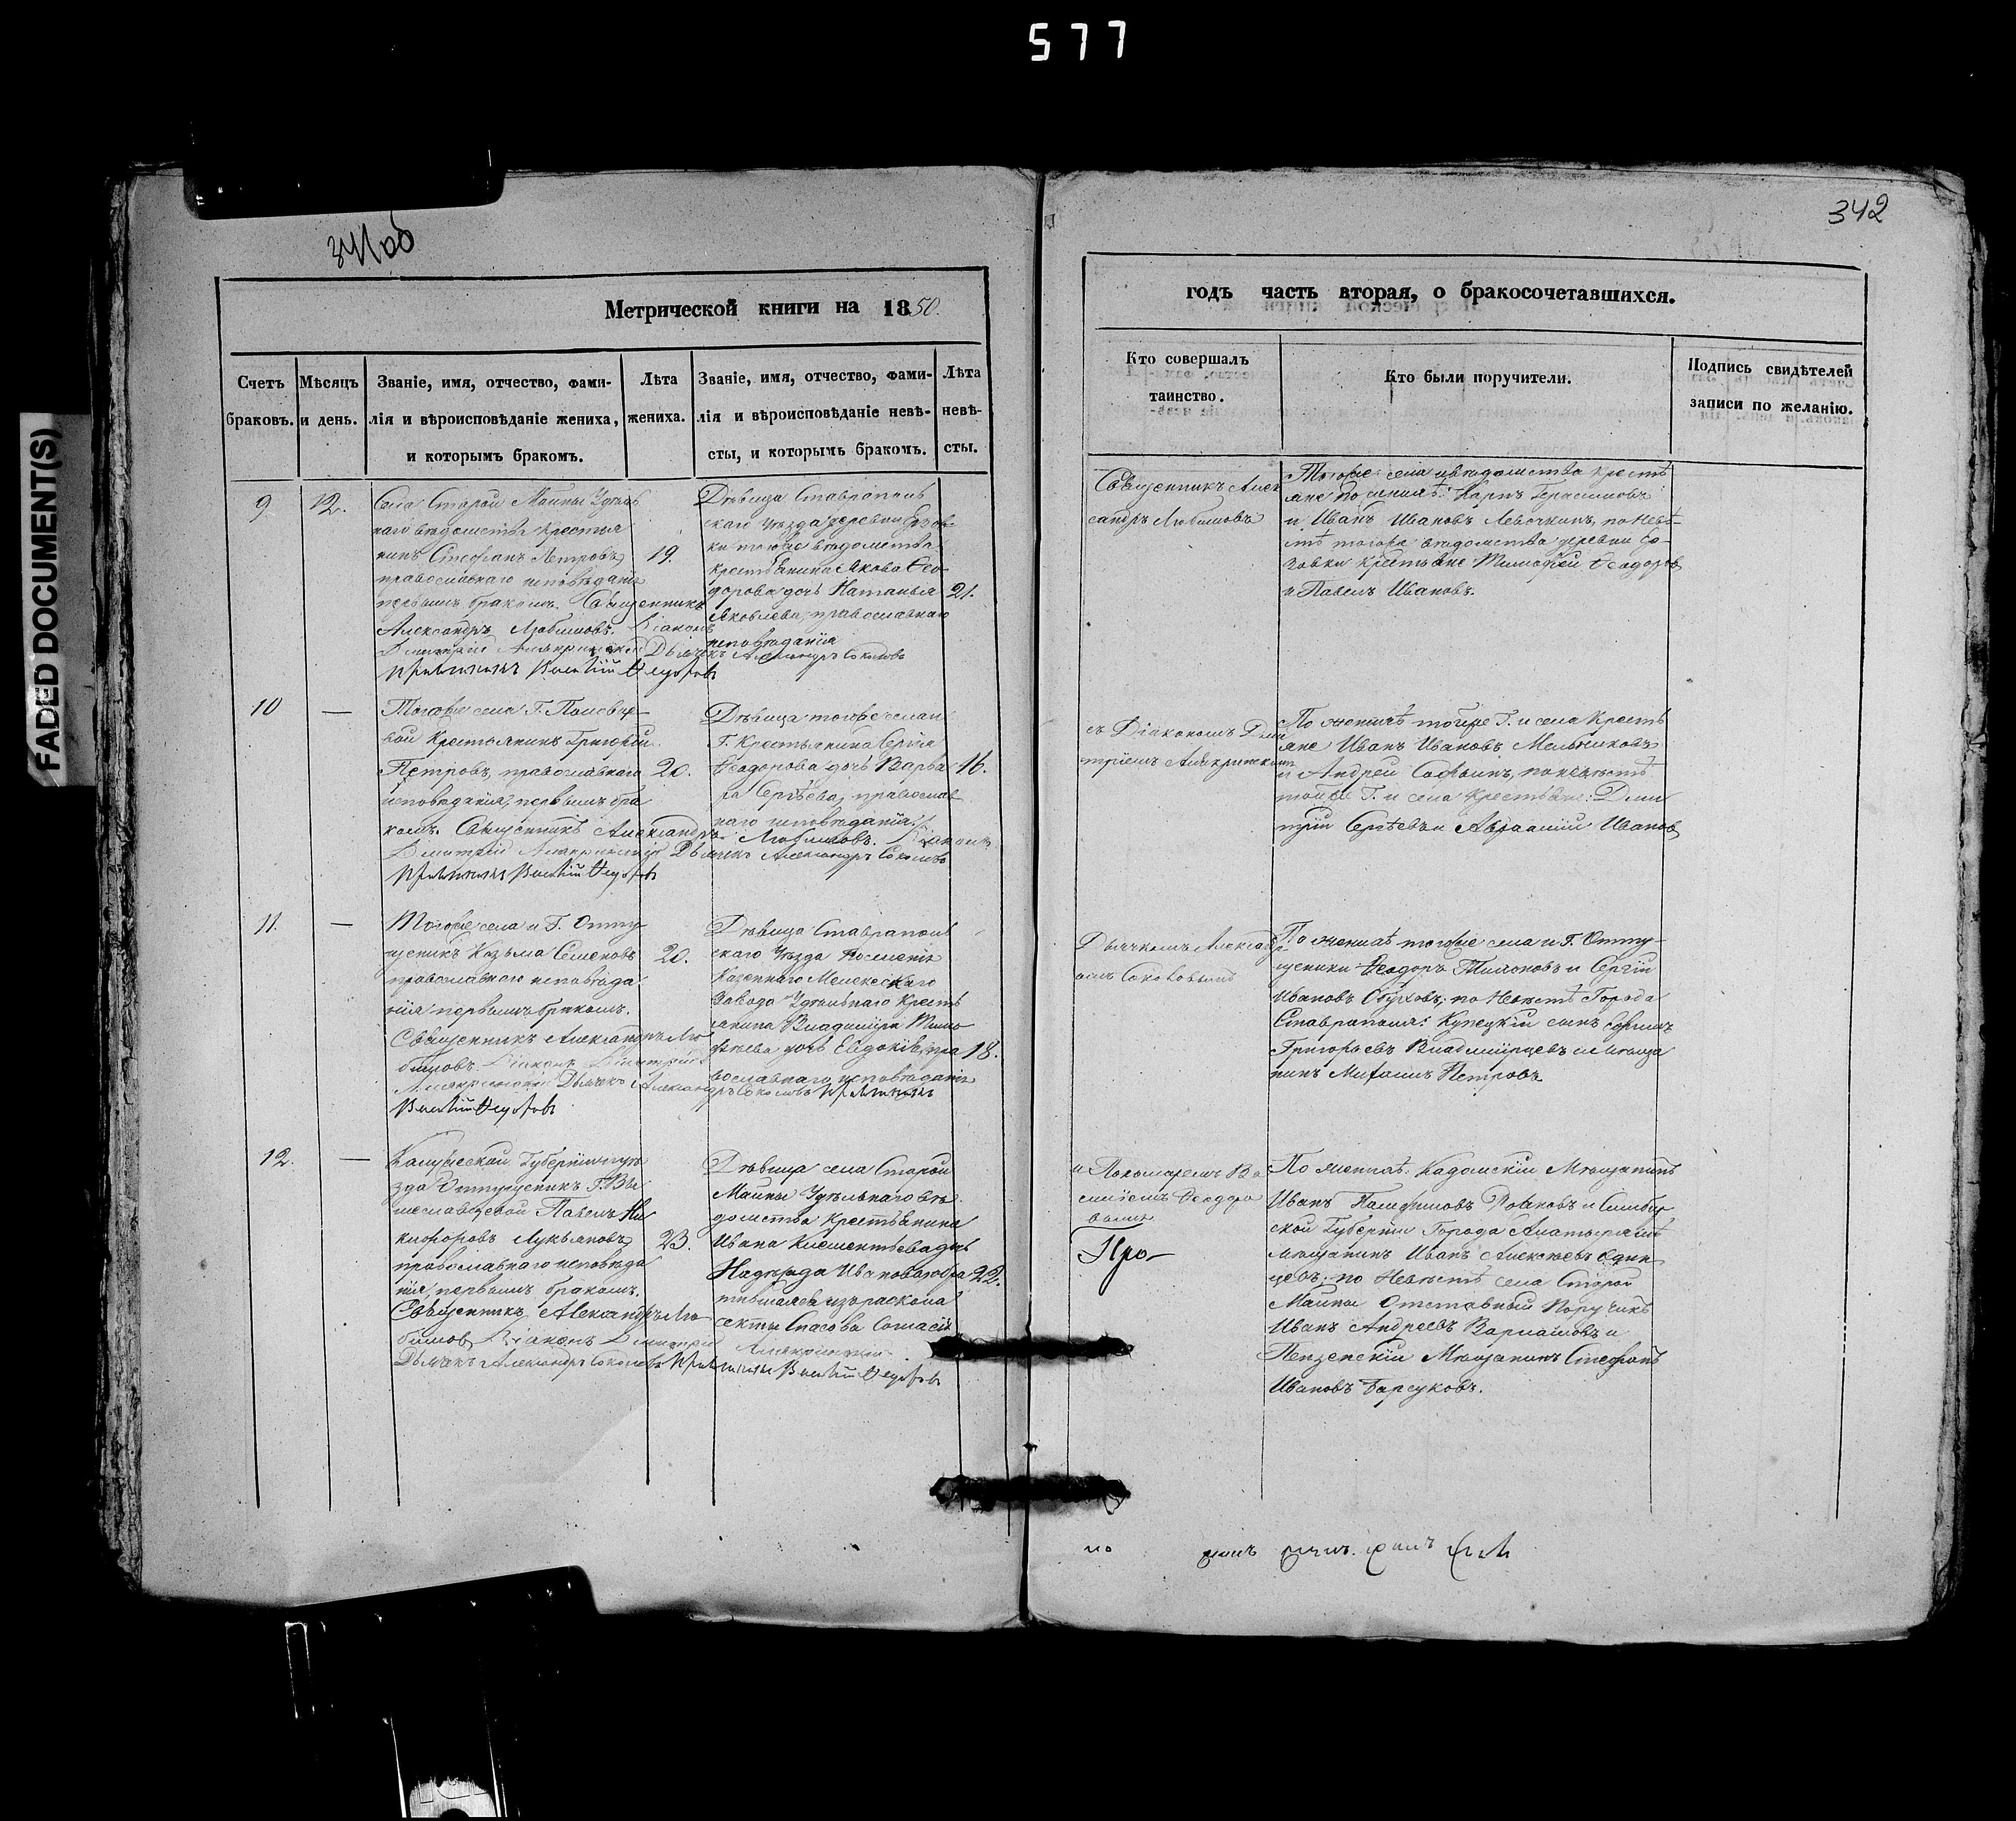 577
FADED DOCUMENT(S)
341об
342
Метрической книги на 1850.
годъ часть вторая, о бракосочетавшихся.
Счетъ браковъ.
Мѣсяцъ и день.
Званіе, имя, отчество, фами-
лія и вѣроисповѣданіе жениха,
и которымъ бракомъ.
Лѣта
жениха.
Званіе, имя, отчество, фами-
лія и вѣроисповѣданіе невѣ-
сты, и которымъ бракомъ.
Лѣта
невѣ-
сты.
Кто совершалъ
таинство.
Кто были поручители.
Подпись свидѣтелей
записи по желанію.
9
12.
Села Старой Майны Удѣль
наго вѣдомства крестья
нинъ Стефанъ Петровъ,
православнаго исповѣданія
первымъ бракомъ. Священникъ
Александръ Любимовъ. Діаконъ
Димитрій Дьячекъ Александръ Соколовъ
Василій Ѳедоровъ
19.
Дѣвица Ставрополь
скаго уѣзда деревни
ки тогоже вѣдомства
крестьянина Якова Ѳео
дорова дочь Наталья
Яковлева, православнаго
исповѣданія
21.
Священникъ Алек
сандръ Любимовъ
Тогоже села и вѣдомства кресть
яне по женихѣ: Карпъ Герасимовъ
и Иванъ Ивановъ Левочкинъ, по невѣ-
стѣ тогоже вѣдомства деревни
крестьяне Тимофей Ѳеодоровъ
и Павелъ Ивановъ.
10
—
Тогоже села Г.
вой Крестьянинъ Григорій
Петровъ, православнаго
исповѣданія, первымъ бра
комъ. Священникъ Александръ Любимовъ. Діаконъ
Димитрій Дьячекъ Александръ Соколовъ
Василій Ѳедоровъ
20.
Дѣвица тогоже села и
Г. Крестьянина Сергія
Ѳеодорова дочь Варва
ра Сергѣева, православ
наго исповѣданія
16.
съ Діакономъ Дми
тріемъ
По женихѣ тойже Г. и села Кресть
яне Иванъ Ивановъ Мельниковъ
и Андрей Софьинъ, по невѣстѣ
тойже Г. и села Крестьяне: Дми
трій Сергѣевъ и Авраамій Ивановъ
11.
—
Тогоже села и Г. Отпу-
щеникъ Козьма Семеновъ
православнаго исповѣда
нія первымъ бракомъ.
Священникъ Александръ Лю
бимовъ Діаконъ Димитрій
Дьячекъ Александръ Соколовъ
Василій Ѳедоровъ
20.
Дѣвица Ставрополь
скаго уѣзда селенія
Казеннаго Мелекескаго
Завода Удѣльнаго кресть
янина Владиміра Тимо
фѣева дочь Евдокія, пра
вославнаго исповѣданія
18.
Дьячкомъ Александр
омъ Соколовымъ
По женихѣ тогоже села и Г. Отпу-
щеники Ѳеодоръ Тихоновъ и Сергій
Ивановъ Обуховъ, по невѣстѣ Города
Ставрополя: Купецкій сынъ Ефимъ
Григорьевъ Владимірцевъ и мѣща
нинъ Михаилъ Петровъ
12.
—
Калужской Губерніи уѣ
зда Отпущеникъ Г. Вы
шеславцевой Павелъ Ни
кифоровъ Лукьяновъ,
православнаго исповѣда
нія, первымъ бракомъ.
Священникъ Александръ Лю
бимовъ Діаконъ Димитрій
Дьячекъ Александръ Соколовъ Василій Ѳедоровъ
23.
Дѣвица села Старой
Майны Удѣльнаго вѣ
домства Крестьянина
Ивана Клементьева дочь
Надежда Иванова, обра
тившаяся изъ раскола
секты Спасова Согласія
22.
и Пономаремъ Ва
силіемъ Ѳеодоро
вымъ
По женихѣ. Кадомскій Мѣщанинъ
Иванъ Памфиловъ и Симбир
ской Губерніи Города Алатыря
мѣщанинъ Иванъ Алексѣевъ Один
цовъ; по Невѣстѣ села Старой
Майны Отставный Поручикъ
Иванъ Андреевъ Варламовъ и
Пензенскій Мѣщанинъ Стефанъ
Ивановъ Барсуковъ.
по